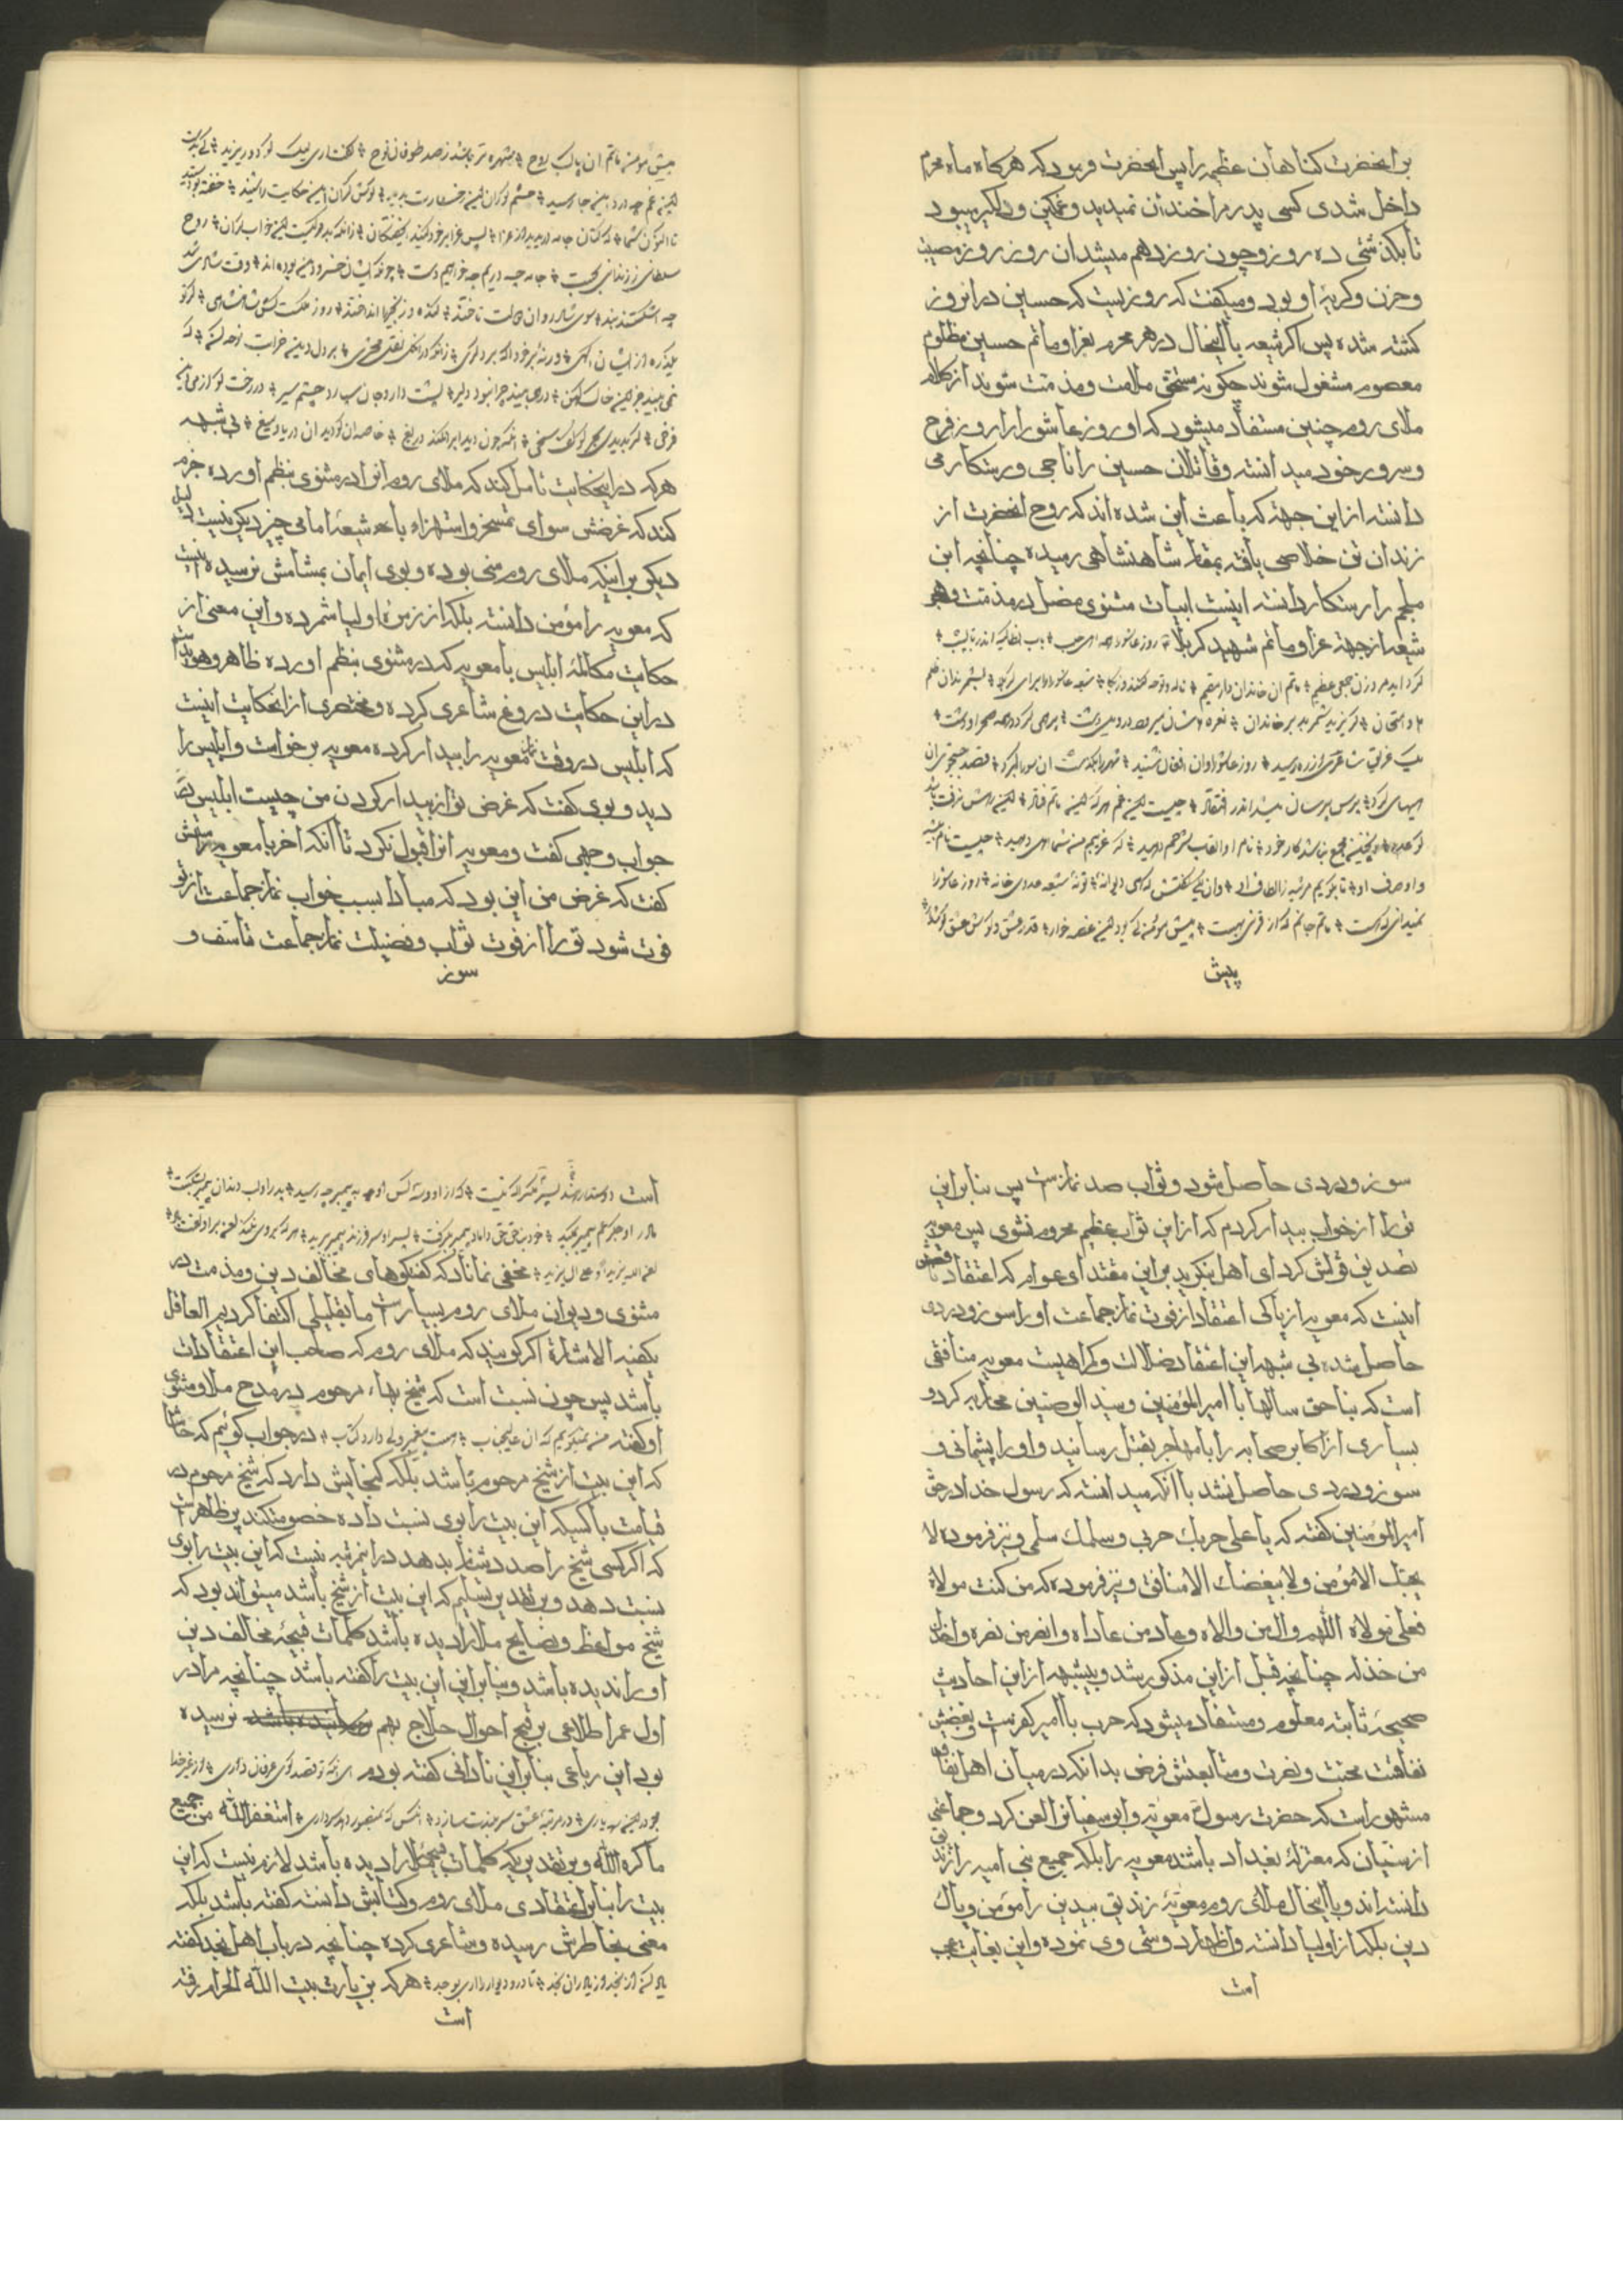 بر انحضرت گناهان عظیم را پس انحضرت فرمود که هرکاه ماه محرم
داخل شدی کسی پدرم را خندان نمیدید و غمکین و دلکیر میبود
تا بکذشتی ده روز و چون روز دهم میشد ان روز روز مصیبت
و حزن و کریهٔ او بود و میکفت که روزیست که حسین در انروز
کشته شده پس اکر شیعه با اینحال در هر محرم بعزا و ماتم حسین مظلوم
معصوم مشغول شوند چکونه مستحق ملامت و مذمت شوند از کلام
ملای روم چنین مستفاد میشود که او روز عاشورا را روز فرح
و سرور خود میدانسته و قاتلان حسین را ناجی و رستکار می
دانسته از این جهة که باعث این شده اند که روح انحضرت از
زندان تن خلاصی یافته بمقام شاهنشاهی رسیده چنانچه ابن
ملجم را رستکار دانسته اینست ابیات مثنوی مضل در مذمت و هجو
شیعه از جهة عزا و ماتم شهید کربلا روز عاشورا همه اهل حلب باب انطاکیه اندر تا بشب
کرد اید مرد و زن جمعی عظیم ماتم ان خاندان دارد مقیم ناله و نوحه کنند اندر بکا شیعه عاشورا برای کربلا بشمرند ان ظلم
ها و امتحان کز یزید و شمر دید بر خاندان نعره هاشان میرود در ویل و دشت پر همی کردد همه صحرا و دشت
یک غریبی شاعری از ره رسید روز عاشورا و ان افغان شنید شهر را بکذاشت ان سو رای کرد قصد جستجوی ان
هیهای کرد پرس پرسان میشد اندر افتقاد چیست این غم بر که این ماتم فتاد این رئیس زفت باشد
که بمرد اینچنین مجمع نباشد کار خرد نام او والقاب او شرحم دهید که غریبم من شما اهل دهید چیست نام و پیشه
و اوصاف او تا بکویم مرثیه ز الطاف او ان یکی کفتش که هی دیوانهٔ تو نهٔ شیعه عدوی خانهٔ روز عاشورا
نمیدانی که هست ماتم جانی که از قرنی بهست پیش مؤمن کی بود این غصه خوار قدر عشق کوش عشق کوشوار
پیش
پیش مؤمن ماتم ان پاک روح شهره تر باشد ز صد طوفان نوح کفت اری لیک کو دور یزید کی بدست
این غم چه دیر اینجا رسید چشم کوران این خسارت را بدید کوش کران این حکایت را شنید خفته بودستید
تا اکنون شما که کنون جامه دریدید از عزا پس عزا بر خود کنید ای خفتکان زانکه بد مرکیست این خواب کران روح
سلطانی ز زندانی بجست جامه چه دریم و چه خاییم دست چونکه ایشان خسرو دین بوده اند وقت شادی شد
چو بشکستند بند سوی شادروان دولت تاختند کنده و زنجیر را انداختند روز ملکست و کش و شاهنشهی کر تو
یک ذره از ایشان اکهی ور نهٔ اکه برو بر خود کری زانکه در انکار نقل و محشری بر دل و دین خرابت نوحه کن که
نمی بیند جز این خاک کهن ور همی بیند چرا نبود دلیر پشت دار و جان سپار و چشم سیر در رخت کو از می دین
فرخی کر بدیدی بحر کو کف سخی انکه جو دید اب را نکند دریغ خاصه ان کو دید ان دریا و میغ بی شبهه
هرکه در اینحکایت تامل کند که ملای روم انرا در مثنوی بنظم اورده جزم
کند که غرضش سوای تمسخر و استهزاء با شیعهٔ امامی چیز دیکر نیست دلیل
دیکر بر اینکه ملای روم سنی بوده و بوی ایمان بمشامش نرسیده اینست
که معویه را مؤمن دانسته بلکه از زمرهٔ اولیا شمرده و این معنی از
حکایت مکالمهٔ ابلیس با معویه که در مثنوی بنظم اورده ظاهر و هویدا
در این حکایت دروغ شاعری کرده و مختصری از انحکایت اینست
که ابلیس در وقت نماز معویه را بیدار کرده معویه برخواست و ابلیس را
دید و بوی کفت که غرض تو از بیدار کردن من چیست ابلیس
جواب وجهی کفت و معویه انرا قبول نکرد تا انکه اخر با معویه
کفت که غرض من این بود که مبادا بسبب خواب نماز جماعت از تو
فوت شود تو را از فوت ثواب و فضیلت نماز جماعت تاسف و
سوز
سوز و دردی حاصل شود و ثواب صد نماز است پس بنابراین
تو را از خواب بیدار کردم که از این ثواب عظیم محروم نشوی پس معویه
تصدیق قولش کرد ای اهل بنکرید بر این مقتدای عوام که اعتقاد
اینست که معویه از پاکی اعتقاد از فوت نماز جماعت او را سوز و دردی
حاصل شده بی شبهه این اعتقاد ضلالت و کراهیت معویه منافقی
است که بناحق سالها با امیر المؤمنین و سید الوصیین محاربه کرد و
بسیاری از اکابر صحابه را با مهاجر بقتل رسانید و او را پشیمانی و
سوز و دردی حاصل نشد با انکه میدانسته که رسول خدا در حق
امیر المؤمنین کفته که یا علی حربک حربی و سلمک سلمی و نیز فرموده لا
یحبک الا مؤمن و لا یبغضک الا منافق و نیز فرموده که من کنت مولاه
فعلی مولاه اللهم وال من والاه و عاد من عاداه و انصر من نصره و اخذل
من خذله چنانچه قبل از این مذکور شد و بیشبهه از این احادیث
صحیحهٔ ثابته معلوم و مستفاد میشود که حرب با امیر کفر است و بغضش
نفاقست محبت و نصرت و متابعتش فرض بدانکه در میان اهل نفاق
مشهور است که حضرت رسول معویه و ابوسفیانرا لعن کرد و جماعتی
از سنیان که معتزلهٔ بغداد باشند معویه را بلکه جمیع بنی امیه را زندیق
دانسته اند و با اینحال ملای روم معویهٔ زندیق بیدین را مؤمن و پاک
دین بلکه از اولیا دانسته و اظهار دوستی وی نموده و این بغایت عجب
است
است دوستدار هند پسر مکر که نیست که از او و سه کس او به پیمبر چه رسید پدر او لب و دندان پیمبر بشکست
مادر او جکر عم پیمبر بمکید خود بناحق حق داماد پیمبر بکرفت پسر او سر فرزند پیمبر ببرید
لعن الله یزیدا و علی ال یزید مخفی نماناد که کفتکوهای مخالف دین و مذمت در
مثنوی و دیوان ملای روم بسیار است ما بقلیلی اکتفا کردیم العاقل
یکفیه الاشارة اکر کویند که ملای روم که صاحب این اعتقادات
باشد پس چون نسبت است که شیخ بهاء مرحوم در مدح ملا و مثنوی
او کفته من نمیکویم که ان عالیجناب هست پیغمبر ولی دارد کتاب در جواب کوئیم که حاشا
که این بیت از شیخ مرحوم باشد بلکه کنجایش دارد که شیخ مرحوم در
قیامت با کسیکه این بیت را بوی نسبت داده خصومت کند پر ظاهر است
که اکر کسی شیخ را صد دشنام بدهد در اینمرتبه نیست که این بیت را بوی
نسبت دهد و بر تقدیر تسلیم که این بیت از شیخ باشد میتواند بود که
شیخ مواعظ و نصایح ملا را دیده باشد کلمات قبیحهٔ مخالف دین
او را ندیده باشد و بنابراین این بیت را کفته باشد چنانچه مرا در
اول عمر اطلاعی بر قبح احوال حلاج بهم نرسیده
بود این رباعی بنابراین نادانی کفته بودم
استغفر الله من جمیع
ما کره الله و بر تقدیریکه کلمات قبیحهٔ ملا را دیده باشد لازم نیست که این
بیت را بنابر اعتقادی ملای روم و کتابش دانسته کفته باشد بلکه
معنی بخاطرش رسیده و شاعری کرده چنانچه در باب اهل نجد کفته
هرکه بزیارت بیت الله الحرام رفته
است